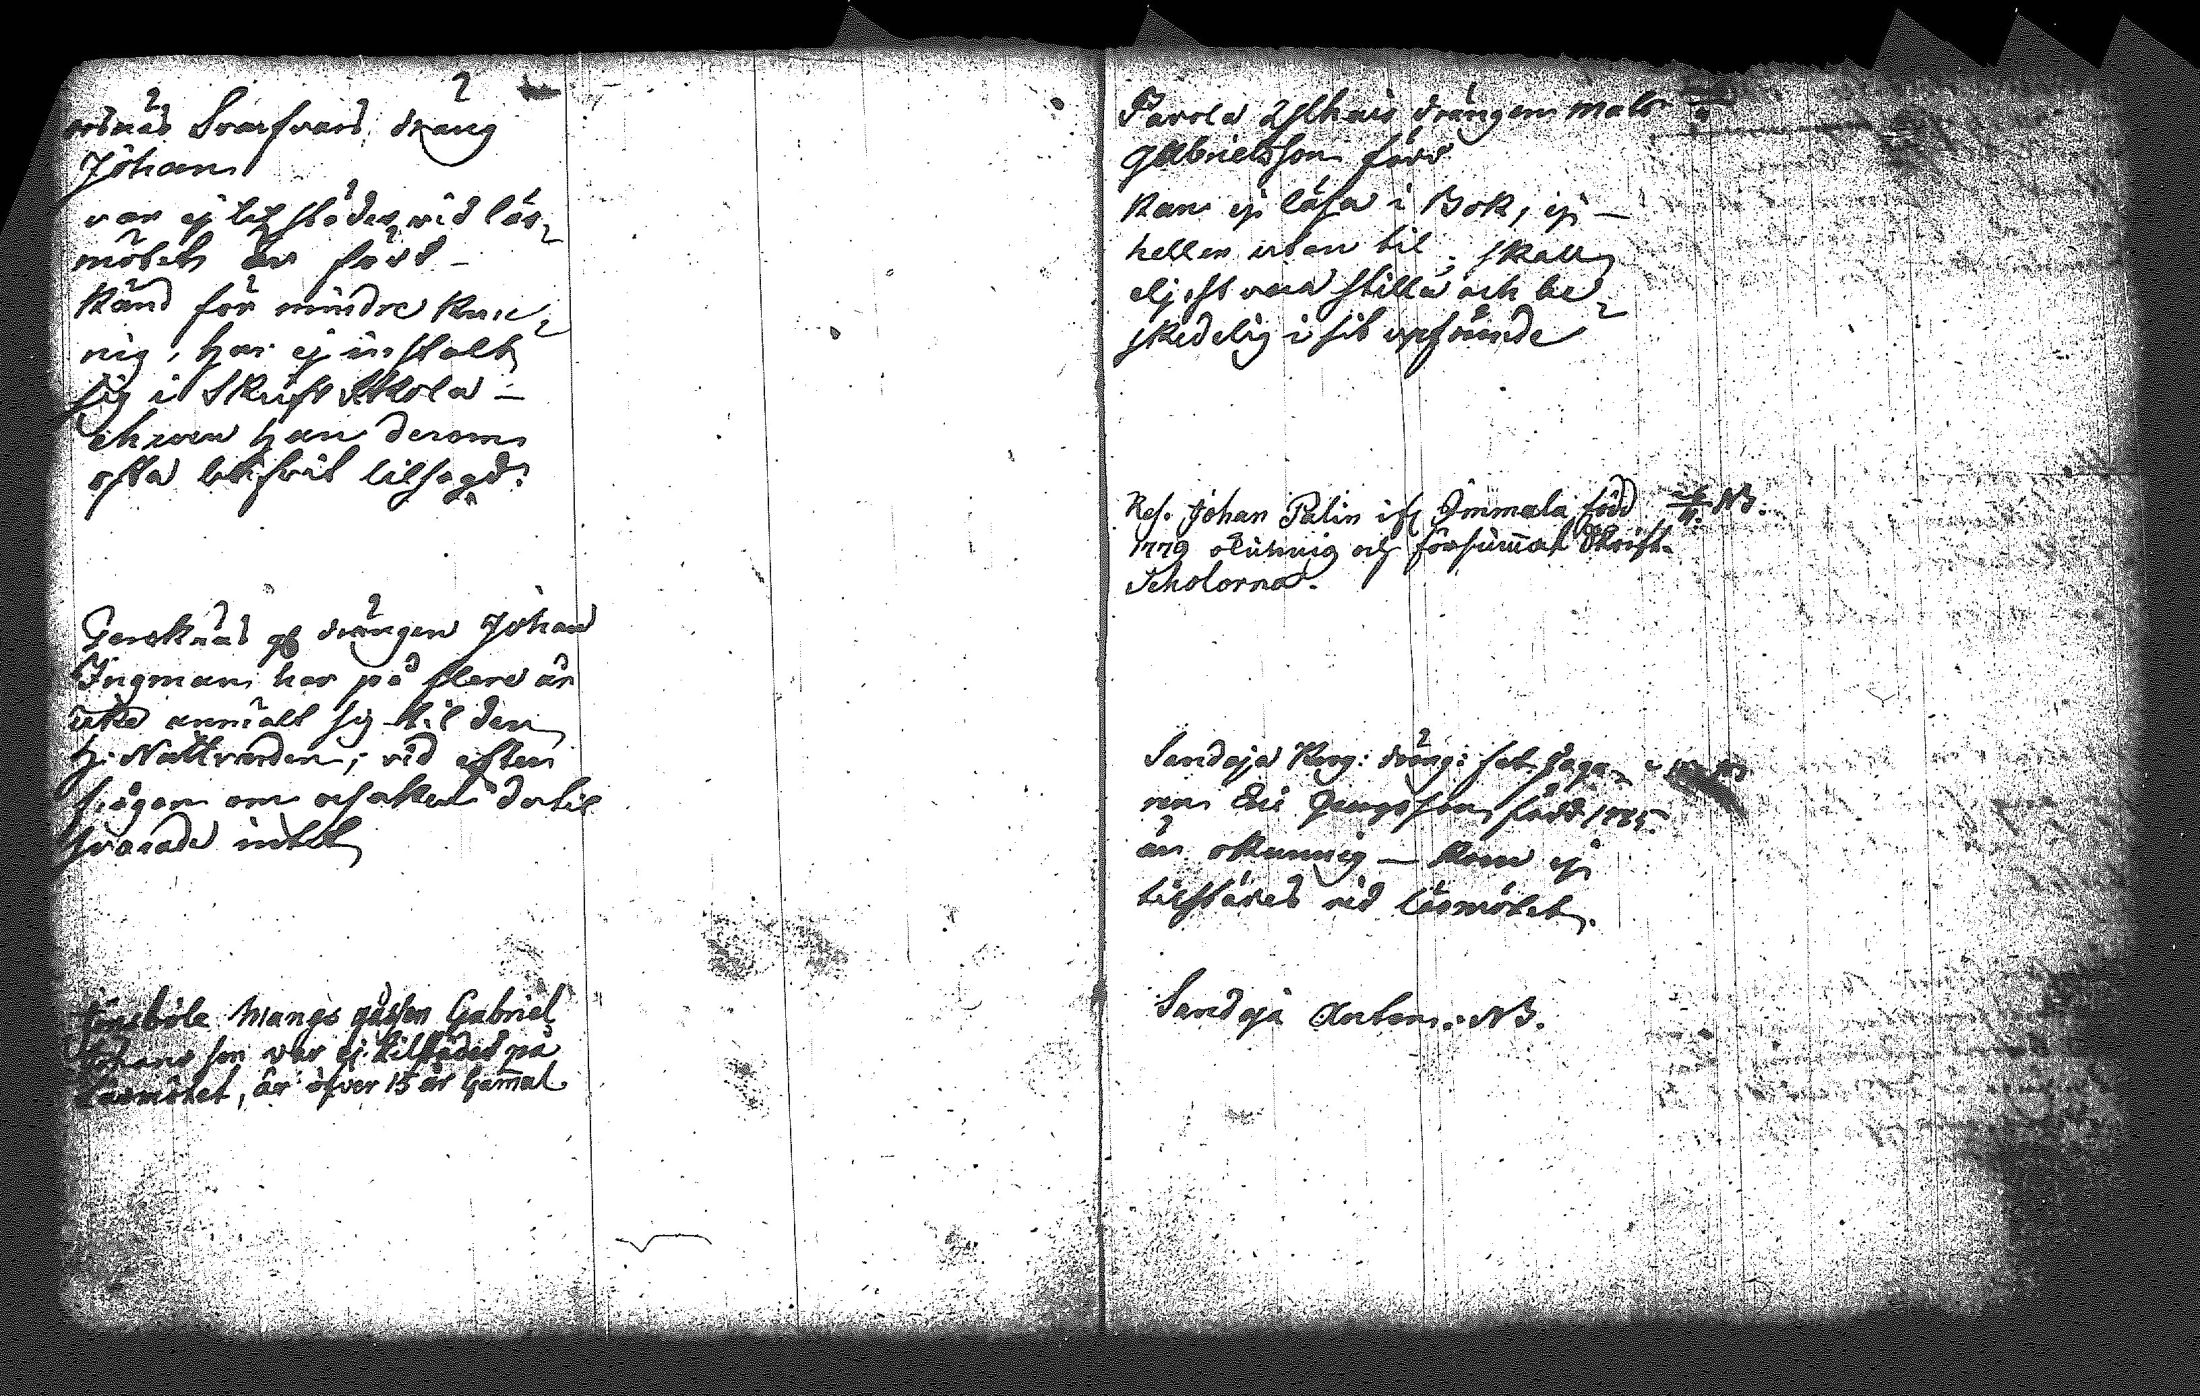 Svarfvars dräng
Johan
var ej tilstädes vid läs-
mötet är född —
känd för mindre kun-
nig, har ej instält
sig i Skrift Skola —
ehuru han derom
ofta blifvit tilsagd.
drängen Johan
Ingman har på flere år
icke anmält sig til den
H. Nattvarden; vid efter-
frågan om orsaken dertil
svarade intet
Mangs gåssen Gabriel
Johansson var ej tilstädes på
Läsmötet, är öfver 15 år gamal
Tavola drängen Mats
Gabrielsson född
kan ej läsa i Bok, ej —
heller utan til, skall
eljest vara stilla och be-
skedelig i sit upförande
Res. Johan Palin ifr Immala född
1779 okunnig och försummat Skrift-
Scholorna.
NB.
Sandaja dräng:
född 1785.
är okunnig — kom ej
tilstädes vid läsmötet.
Sandaja Anton: NB.